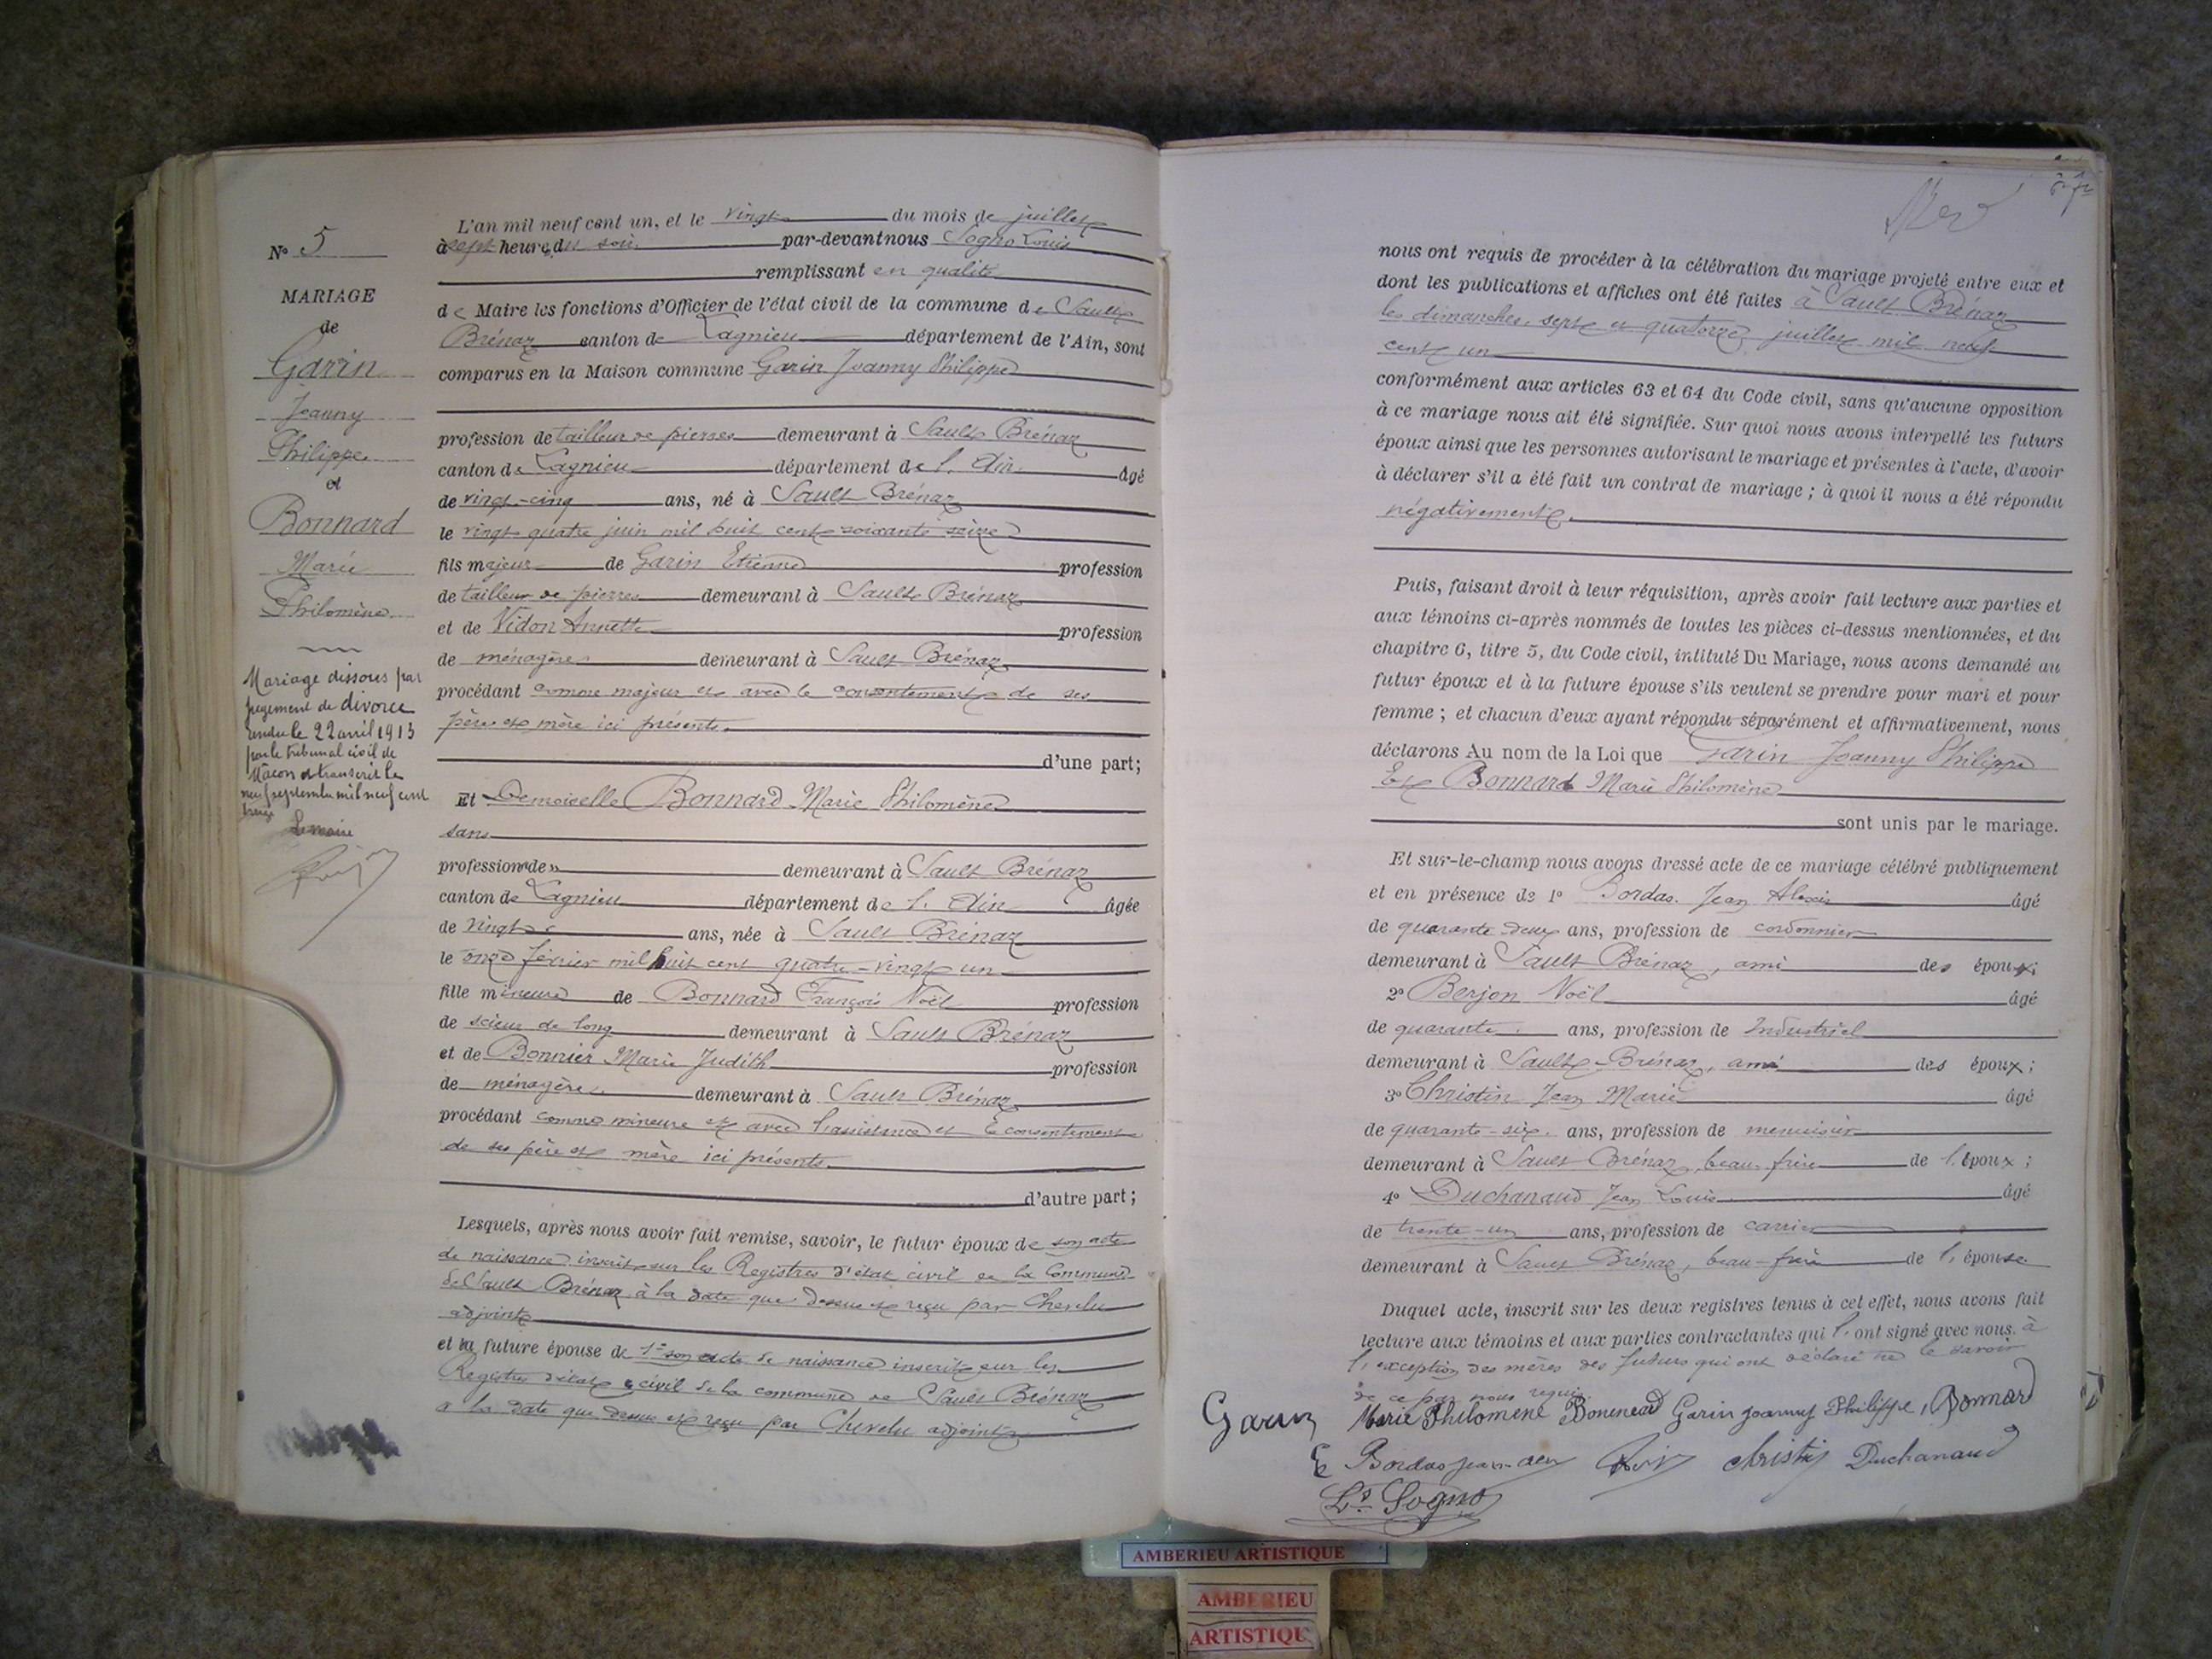 N° 5
MARIAGE
de
Garin
Joanny
Philippe
et
Bonnard
Marie
Philomène
Mariage dissous par
jugement de divorce
rendu le 22 avril 1913
par le tribunal civil de
Mâcon et transcrit le
neuf septembre mil neuf cent
treize
Le maire
L'an mil neuf cent un, et le vingt du mois de juillet
à sept heures du soir par-devant nous Sogno Louis
remplissant en qualité
de Maire les fonctions d'Officier de l'état civil de la commune de Sault
Brénaz canton de Lagnieu département de l'Ain, sont
comparus en la Maison commune Garin Joanny Philippe
profession de tailleur de pierres demeurant à Sault Brénaz
canton de Lagnieu département de l'Ain âgé
de vingt-cinq ans, né à Sault Brénaz
le vingt quatre juin mil huit cent soixante seize
fils majeur de Garin Etienne profession
de tailleur de pierres demeurant à Sault Brénaz
et de Vidon Annette profession
de ménagère demeurant à Sault Brénaz
procédant comme majeur et avec le consentement de ses
père et mère ici présents.
d'une part;
Et Demoiselle Bonnard Marie Philomène
sans
profession de demeurant à Sault Brénaz
canton de Lagnieu département de l'Ain âgée
de vingt ans, née à Sault Brénaz
le onze février mil huit cent quatre-vingt un
fille mineure de Bonnard François Noël profession
de scieur de long demeurant à Sault Brénaz
et de Bonnier Marie Judith profession
de ménagère demeurant à Sault Brénaz
procédant comme mineure et avec l'assistance et le consentement
de ses père et mère ici présents.
d'autre part;
Lesquels, après nous avoir fait remise, savoir, le futur époux de son acte
de naissance inscrit sur les Registres d'état civil de la Commune
de Sault Brénaz à la date que dessus et reçu par Chevelu
adjoint
et la future épouse de 1° son acte de naissance inscrit sur les
Registres d'état civil de la commune de Sault Brénaz
à la date que dessus et reçu par Chevelu adjoint
nous ont requis de procéder à la célébration du mariage projeté entre eux et
dont les publications et affiches ont été faites à Sault Brénaz
les dimanches sept et quatorze juillet mil neuf
cent un
conformément aux articles 63 et 64 du Code civil, sans qu'aucune opposition
à ce mariage nous ait été signifiée. Sur quoi nous avons interpellé les futurs
époux ainsi que les personnes autorisant le mariage et présentes à l'acte, d'avoir
à déclarer s'il a été fait un contrat de mariage; à quoi il nous a été répondu
négativement.
Puis, faisant droit à leur réquisition, après avoir fait lecture aux parties et
aux témoins ci-après nommés de toutes les pièces ci-dessus mentionnées, et du
chapitre 6, titre 5, du Code civil, intitulé Du Mariage, nous avons demandé au
futur époux et à la future épouse s'ils veulent se prendre pour mari et pour
femme; et chacun d'eux ayant répondu séparément et affirmativement, nous
déclarons Au nom de la Loi que Garin Joanny Philippe
Et Bonnard Marie Philomène
sont unis par le mariage.
Et sur-le-champ nous avons dressé acte de ce mariage célébré publiquement
et en présence de 1° Bordas Jean Alexis âgé
de quarante deux ans, profession de cordonnier
demeurant à Sault Brénaz, ami des époux;
2° Berjon Noël âgé
de quarante ans, profession de Industriel
demeurant à Sault-Brénaz, ami des époux;
3° Christin Jean Marie âgé
de quarante-six ans, profession de menuisier
demeurant à Sault Brénaz, beau-frère de l'époux;
4° Duchanaud Jean Louis âgé
de trente-un ans, profession de carrier
demeurant à Sault Brénaz, beau-frère de l'épouse
Duquel acte, inscrit sur les deux registres tenus à cet effet, nous avons fait
lecture aux témoins et aux parties contractantes qui l'ont signé avec nous à
l'exception des mères des futurs qui ont déclaré ne le savoir
de ce par nous requis.
Garin Marie Philomène Garin Joanny Philippe, Bonnard
Bordas Jean Christin Duchanaud
Ls Sogno
AMBERIEU ARTISTIQUE
AMBERIEU
ARTISTIQU